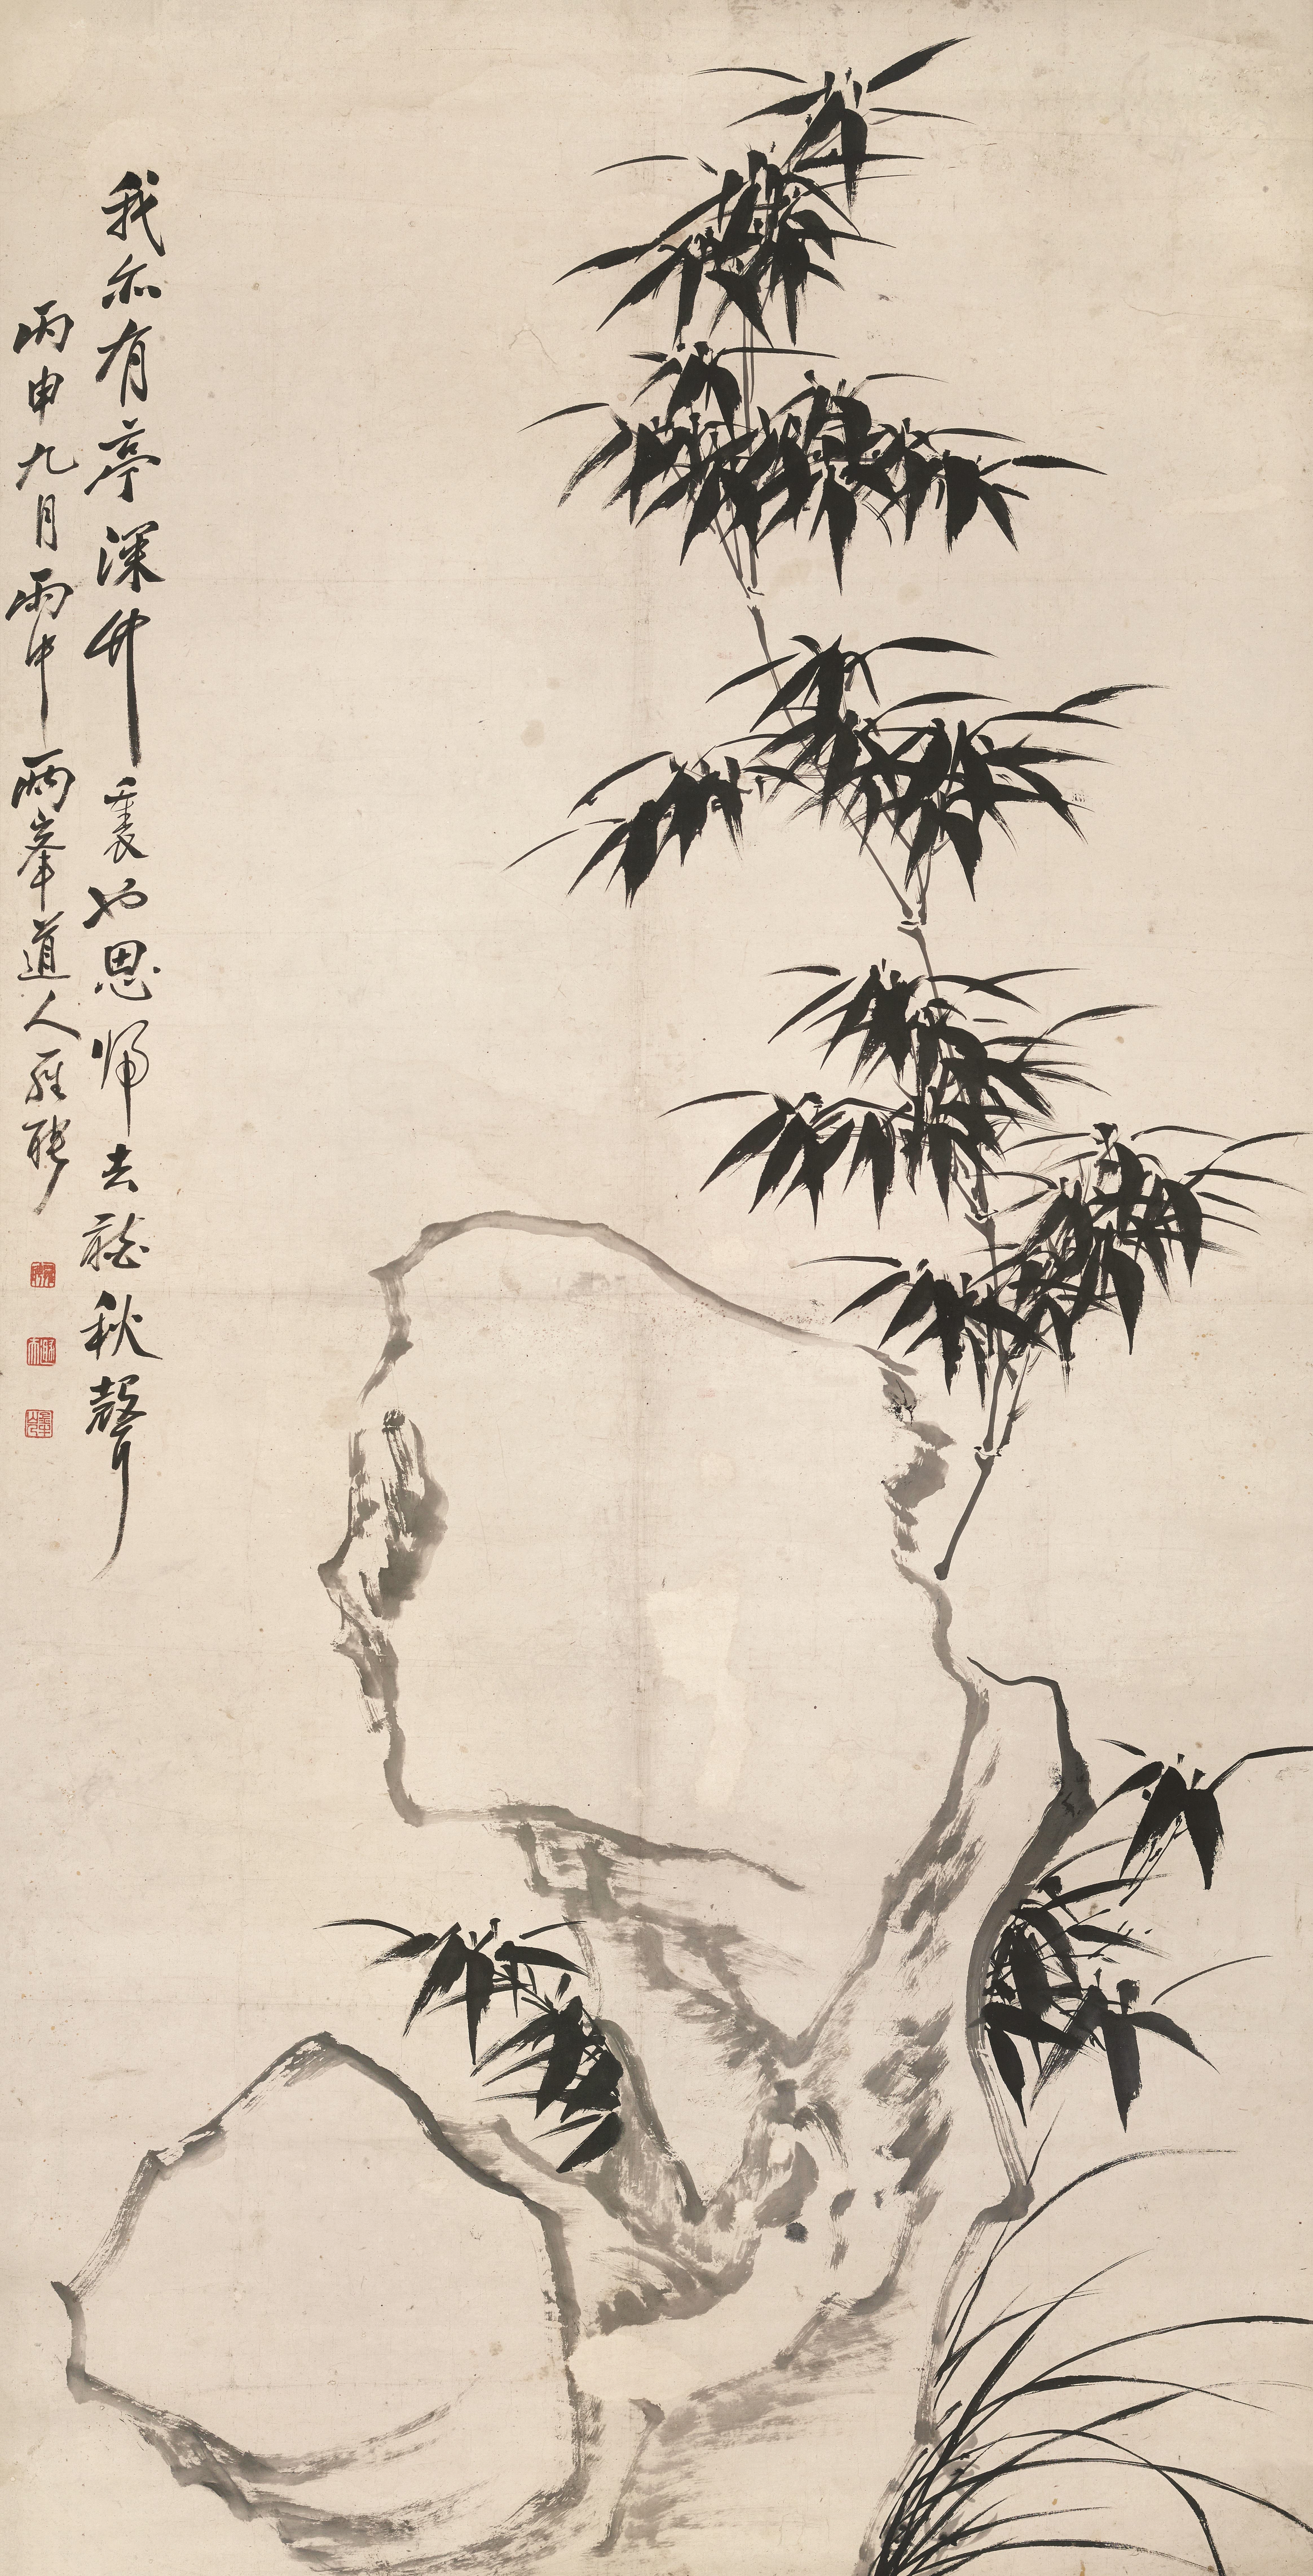 我亦有亭深竹裏也思帰去聽秋聲
丙申九月雨中兩峯道人羅聘